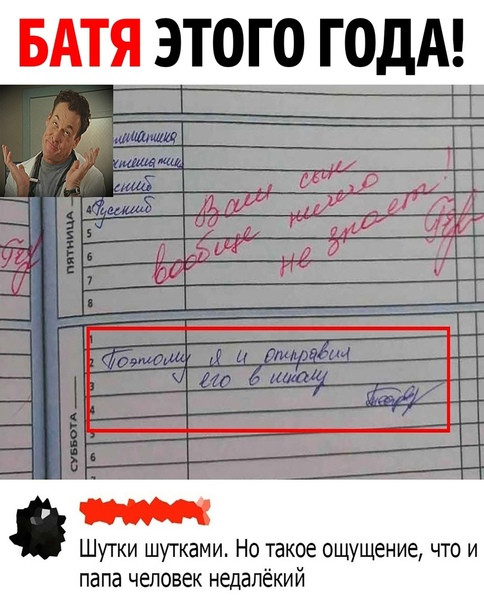 БАТЯ ЭТОГО ГОДА!
математика
математика
русский
4 Русский
5
6
7
8
ПЯТНИЦА
Ваш сын
вообще ничего
не знает!
1
2 Поэтому я и отправил
3 его в школу
4
5
6
СУББОТА
Шутки шутками. Но такое ощущение, что и
папа человек недалёкий